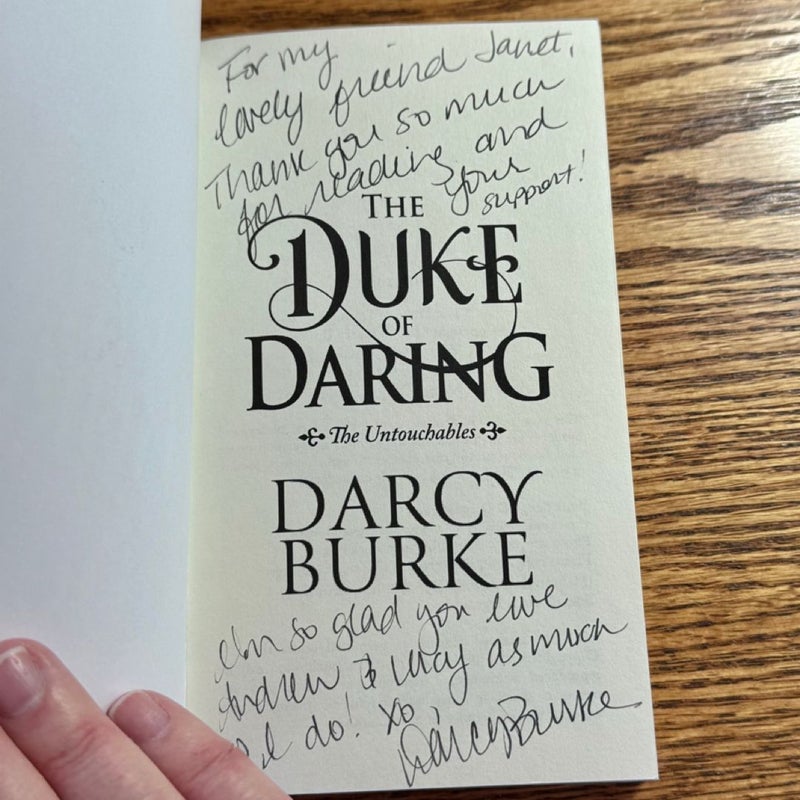 For my
lovely friend Janet,
Thank you so much
for reading and
your
support!
THE
DUKE
OF
DARING
The Untouchables
DARCY
BURKE
I'm so glad you love
Andrew & Lucy as much
as I do! xo,
Darcy Burke